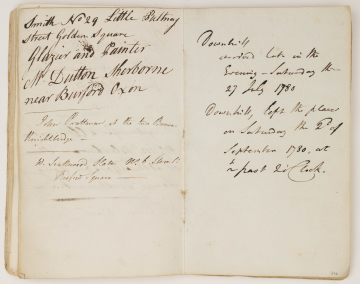 Smith No 29 Little Pultney
Street Golden Square
Glazier and Painter
Mr Dutton Sherborne
near Burford Oxon
John at the
Knightsbridge
Street
Square
Downhill
arrived late in the
Evening Saturday the
27 July 1780
Downhill, left the place
on Saturday the 2d of
September 1780, at
½ past 2 o Clock.